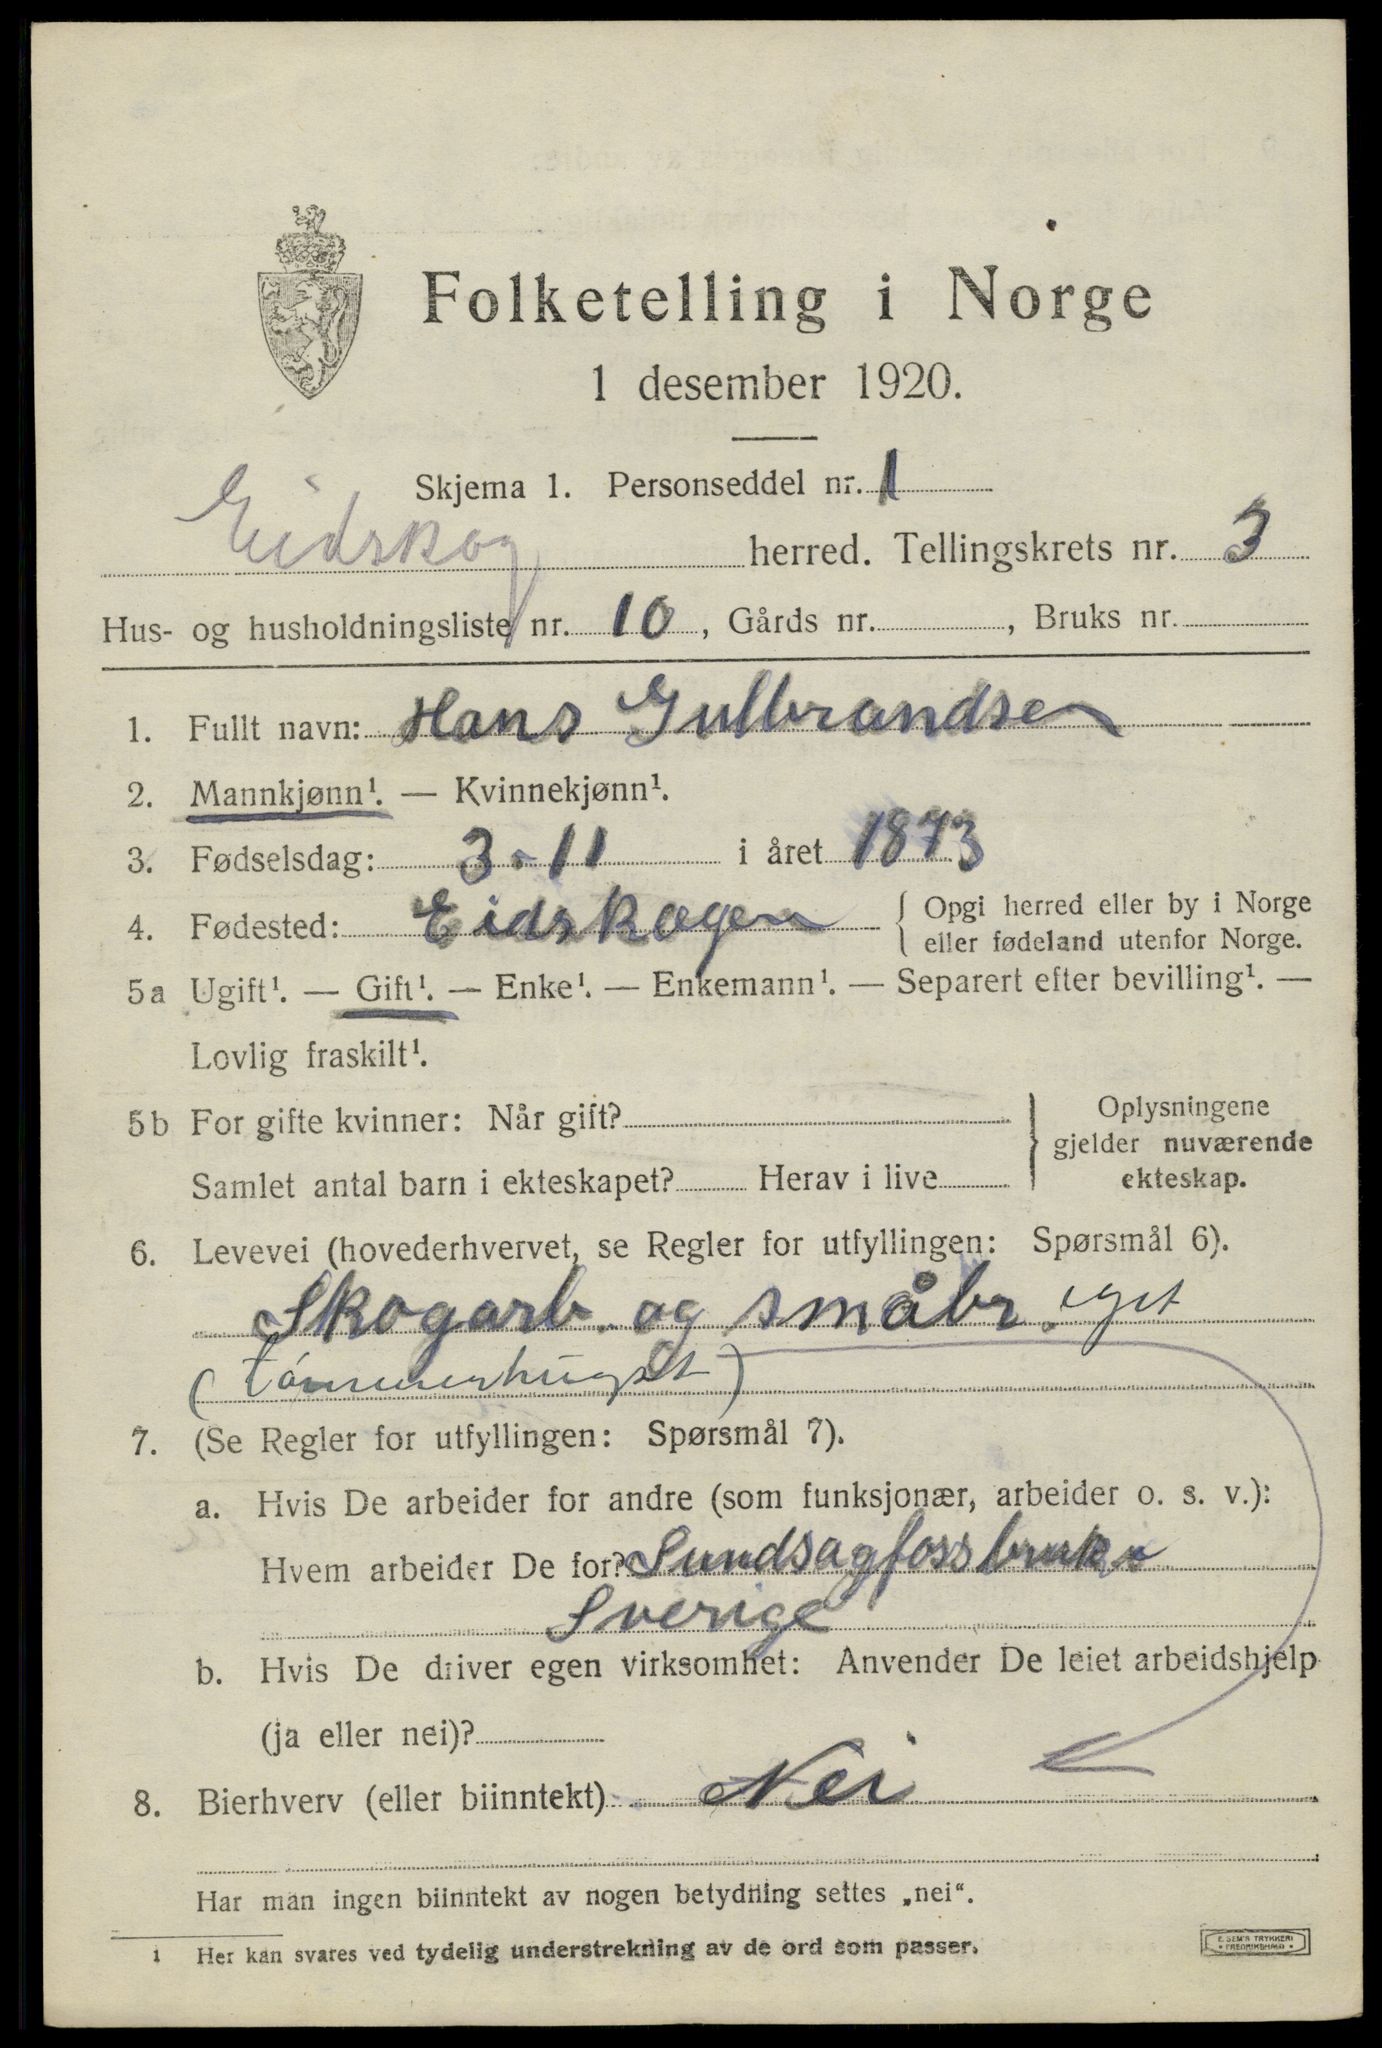 Folketelling i Norge
1 desember 1920.
Skjema 1. Personseddel nr. 1
Eidskog herred. Tellingskrets nr. 3
Hus- og husholdningsliste nr. 10, Gårds nr. , Bruks nr.
1. Fullt navn: Hans Gulbrandsen
2. Mannkjønn¹. — Kvinnekjønn¹.
3. Fødselsdag: 3-11 i året 1873
4. Fødested: Eidskogen { Opgi herred eller by i Norge
eller fødeland utenfor Norge.
5a Ugift¹. — Gift¹. — Enke¹. — Enkemann¹. — Separert efter bevilling¹. —
Lovlig fraskilt¹.
5b For gifte kvinner: Når gift? } Oplysningene
gjelder nuværende
Samlet antal barn i ekteskapet? Herav i live ekteskap.
6. Levevei (hovederhvervet, se Regler for utfyllingen: Spørsmål 6).
Skogarb. og småbr. eget
(tømmerhugst)
7. (Se Regler for utfyllingen: Spørsmål 7).
a. Hvis De arbeider for andre (som funksjonær, arbeider o. s. v.):
Hvem arbeider De for? Sundsagfossbruk
Sverige
b. Hvis De driver egen virksomhet: Anvender De leiet arbeidshjelp
(ja eller nei)?
8. Bierhverv (eller biinntekt) Nei
Har man ingen biinntekt av nogen betydning settes „nei“.
1 Her kan svares ved tydelig understrekning av de ord som passer.
E. SEM'S TRYKKERI
• FREDRIKSHALD •